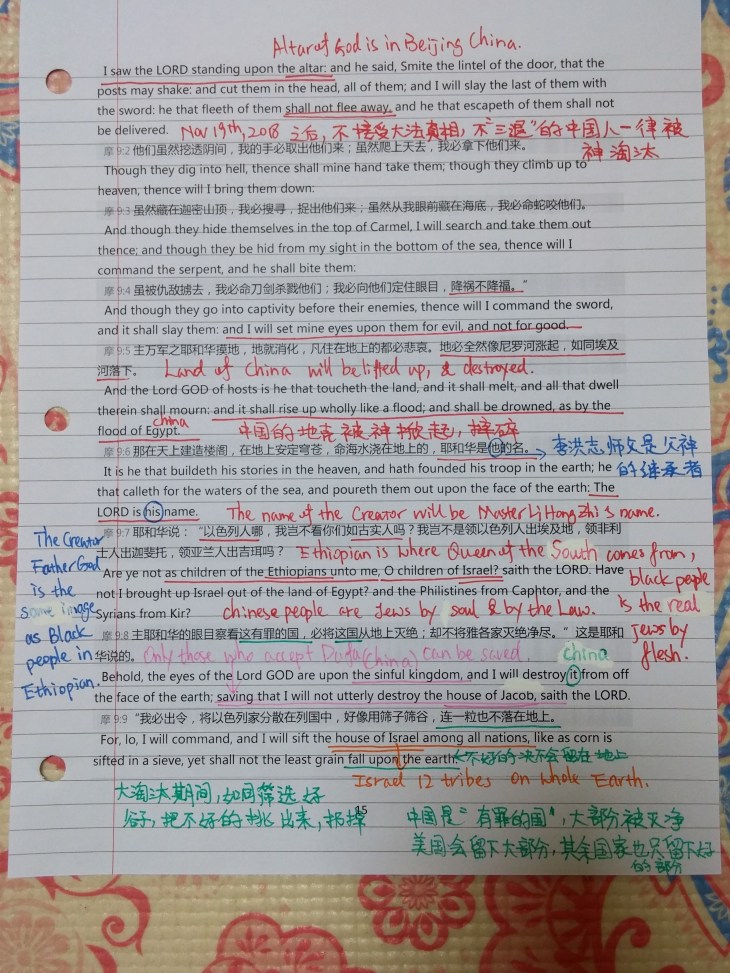 Altar of God is in Beijing China.
I saw the LORD standing upon the altar: and he said, Smite the lintel of the door, that the
posts may shake: and cut them in the head, all of them; and I will slay the last of them with
the sword: he that fleeth of them shall not flee away, and he that escapeth of them shall not
be delivered. Nov 19th, 2018 之后，不接受大法真相，不"三退"的中国人一律被
神淘汰
摩 9:2 他们虽然挖透阴间，我的手必取出他们来；虽然爬上天去，我必拿下他们来。
Though they dig into hell, thence shall mine hand take them; though they climb up to
heaven, thence will I bring them down:
摩 9:3 虽然藏在迦密山顶，我必搜寻，捉出他们来；虽然从我眼前藏在海底，我必命蛇咬他们。
And though they hide themselves in the top of Carmel, I will search and take them out
thence; and though they be hid from my sight in the bottom of the sea, thence will I
command the serpent, and he shall bite them:
摩 9:4 虽被仇敌掳去，我必命刀剑杀戮他们；我必向他们定住眼目，降祸不降福。"
And though they go into captivity before their enemies, thence will I command the sword,
and it shall slay them: and I will set mine eyes upon them for evil, and not for good.
摩 9:5 主万军之耶和华摸地，地就消化，凡住在地上的都必悲哀。地必全然像尼罗河涨起，如同埃及
河落下。 Land of China will be lifted up, & destroyed.
And the Lord GOD of hosts is he that toucheth the land, and it shall melt, and all that dwell
therein shall mourn: and it shall rise up wholly like a flood; and shall be drowned, as by the
China
flood of Egypt. 中国的地壳被神掀起，摔碎
摩 9:6 那在天上建造楼阁，在地上安定穹苍，命海水浇在地上的，耶和华是他的名。 李洪志师父是父神
的继承者
It is he that buildeth his stories in the heaven, and hath founded his troop in the earth; he
that calleth for the waters of the sea, and poureth them out upon the face of the earth: The
LORD is his name. The name of the Creator will be Master Li Hong Zhi's name.
摩 9:7 耶和华说："以色列人哪，我岂不看你们如古实人吗？我岂不是领以色列人出埃及地，领非利
士人出迦斐托，领亚兰人出吉珥吗？ Ethiopian is where Queen of the South comes from,
Are ye not as children of the Ethiopians unto me, O children of Israel? saith the LORD. Have
not I brought up Israel out of the land of Egypt? and the Philistines from Caphtor, and the
Syrians from Kir? Chinese people are Jews by soul & by the Law.
black people
is the real
Jews by
flesh.
The Creator
Father God
is the
same image
as Black
people in
Ethiopian.
摩 9:8 主耶和华的眼目察看这有罪的国，必将这国从地上灭绝；却不将雅各家灭绝净尽。"这是耶和
华说的。 Only those who accept Dafa (China) can be saved. China
Behold, the eyes of the Lord GOD are upon the sinful kingdom, and I will destroy it from off
the face of the earth; saving that I will not utterly destroy the house of Jacob, saith the LORD.
摩 9:9 "我必出令，将以色列家分散在列国中，好像用筛子筛谷，连一粒也不落在地上。
For, lo, I will command, and I will sift the house of Israel among all nations, like as corn is
sifted in a sieve, yet shall not the least grain fall upon the earth 不好的决不会留在地上
Israel 12 tribes on whole Earth.
大淘汰期间，如同筛选好
谷子，把不好的挑出来，扔掉
15
中国是"有罪的国"，大部分被灭净
美国会留下大部分，其余国家也只留下好
的部分